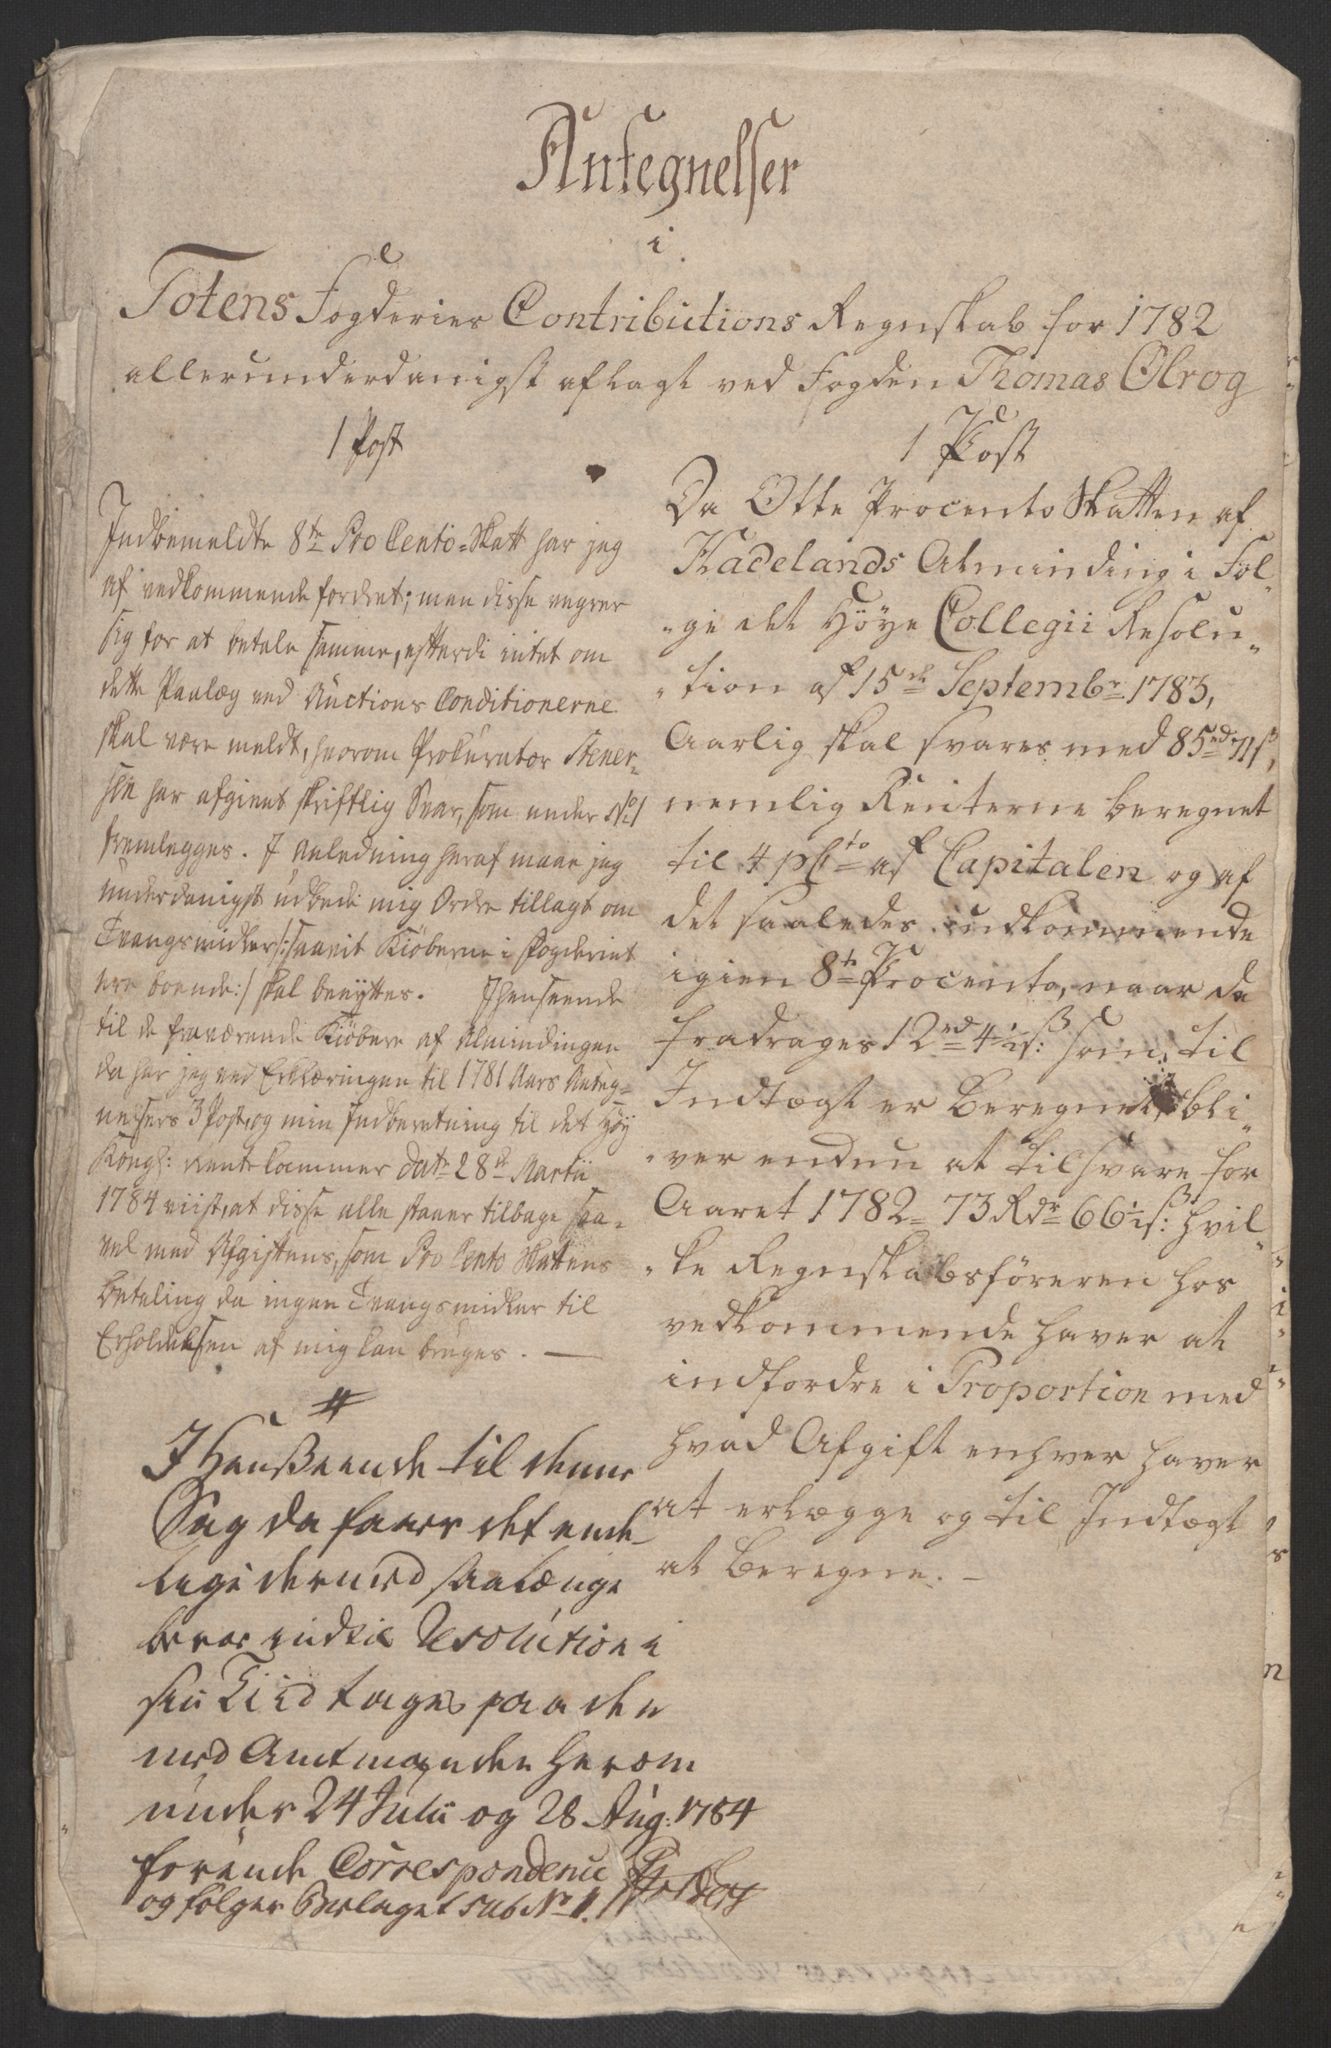 Antegnelser
i
Totens Fogderies Contributions Regnskab for 1782
allerunderdanigst aflagt ved Fogden Thomas Olrog
1 Post
Indbemeldte 8te Pro Cento-Skatt har jeg
af vedkommende fordret; men disse vegrer
sig for at betale samme, efterdi intet om
dette Paalæg ved Auctions Conditionerne
skal være meldt, hvorom Prokurator Stener-
sen har afgivet skriftlig Svar, som under No 1
fremlegges. I Anledning heraf maae jeg
underdanigst udbede mig Ordre tillagt om
Tvangsmidler /: saavit Kiöberne i Fogderiet
ere boende :/ skal benyttes. I henseende
til de fraværende Kiöbere af Almindingen
da har jeg ved Erklæringen til 1781 Aars Anteg-
nelsers 3 Post, og min Indberetning til det Höy
Kongl: Rente Cammer dat: 28de Martii
1784 viist, at disse alle staaer tilbage saa-
vel med Afgiftens, som Pro Cento Skattens
Betaling da ingen Tvangsmidler til
Erholdelsen af mig kan bruges. —
#
I Henseende til denne
Sag da faaer det ende-
lige dermed saalænge
beroe indtil Resolution i
sin Tiid tages paa den
med Amtmanden herom
under 24 Julii og 28 Aug: 1784
forende Correspondence
og følger Bielaget sub No 1.
1 Post
Da Otte Procento Skatten af
Hadelands Alminding i Föl-
-ge det Höye Collegii Resolu-
-tion af 15de Septembr 1783,
Aarlig skal svares med 85 rd 71 s,
nemlig Renterne beregnet
til 4 pCto af Capitalen og af
det saaledes udkommende
igien 8te Procento, naar da
fradrages 12 rd 4½ s: som til
Indtægt er Beregnet, bli-
-ver endnu at tilsvare for
Aaret 1782 - 73 Rdr 66½ s: hvil-
-ke Regnskabsföreren hos
vedkommende haver at
indfordre i Proportion med
hvad Afgift enhver haver
at erlægge og til Indtægt
at Beregne. —